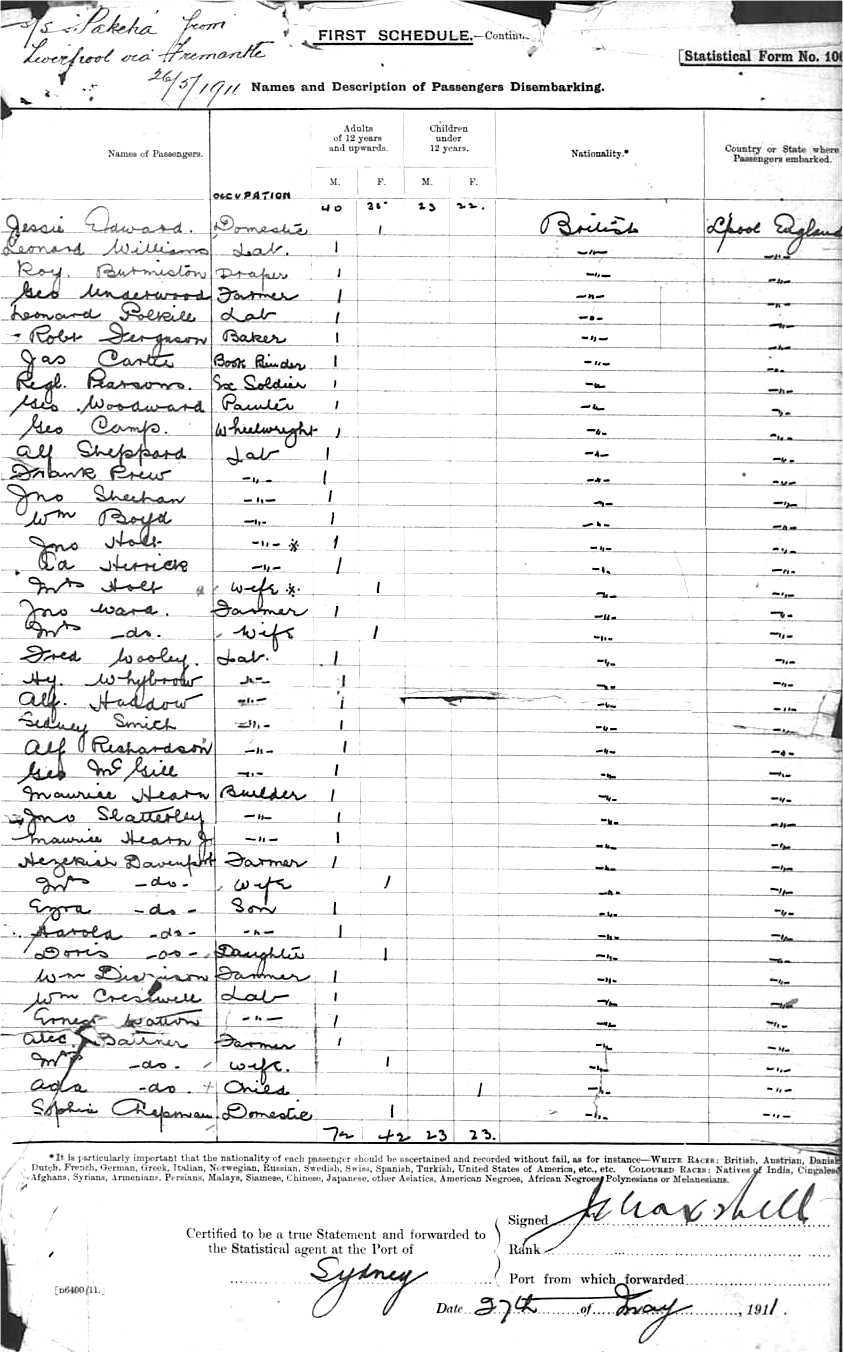 S/S Pakeha from
FIRST SCHEDULE.—Contin
Liverpool via Fremantle
[Statistical Form No. 10
26/5/1911
Names and Description of Passengers Disembarking.
Names of Passengers. OCCUPATION Adults of 12 years and upwards. M. F. Children under 12 years. M. F. Nationality.* Country or State where Passengers embarked.
40 23 22.
Jessie Edward. Domestic 1 British Lpool England
Leonard Williams Lab. 1 -"- -"-
Roy. Burmiston Draper 1 -"- -"-
Geo Underwood Farmer 1 -"- -"-
Leonard Lab 1 -"- -"-
Robt Ferguson Baker 1 -"- -"-
Jas Book Binder 1 -"- -"-
Regl. Pearsons. Ex Soldier 1 -"- -"-
Geo Woodward Painter 1 -"- -"-
Geo Camp. Wheelwright 1 -"- -"-
Alf Sheppard Lab 1 -"- -"-
Frank Prew -"- 1 -"- -"-
Jno Sheehan -"- 1 -"- -"-
Wm Boyd -"- 1 -"- -"-
Jno Holt -"- * 1 -"- -"-
Herrick -"- 1 -"- -"-
Mrs Holt wife * 1 -"- -"-
Jno Ward. Farmer 1 -"- -"-
Mrs -do- wife 1 -"- -"-
Fred Wooley. Lab. 1 -"- -"-
Hy. Whybrow -"- 1 -"- -"-
Alf. Haddow -"- 1 -"- -"-
Sidney Smith -"- 1 -"- -"-
Alf Richardson -"- 1 -"- -"-
Geo McGill -"- 1 -"- -"-
Maurice Hearn Builder 1 -"- -"-
Jno Slatterley -"- 1 -"- -"-
Maurice Hearn Jr -"- 1 -"- -"-
Hezekiah Davenport Farmer 1 -"- -"-
Mrs -do- wife 1 -"- -"-
Ezra -do- Son 1 -"- -"-
Harold -do- -"- 1 -"- -"-
Doris -do- Daughter 1 -"- -"-
Wm Farmer 1 -"- -"-
Wm Cresswell Lab 1 -"- -"-
Ernest Watton -"- 1 -"- -"-
Alec. Farmer 1 -"- -"-
Mrs -do. wife. 1 -"- -"-
Ada -do. + Child 1 -"- -"-
Sophia Chapman Domestic 1 -"- -"-
72 42 23 23.
*It is particularly important that the nationality of each passenger should be ascertained and recorded without fail, as for instance—WHITE RACES: British, Austrian, Danish
Dutch, French, German, Greek, Italian, Norwegian, Russian, Swedish, Swiss, Spanish, Turkish, United States of America, etc., etc. COLOURED RACES: Natives of India, Cingalese
Afghans, Syrians, Armenians, Persians, Malays, Siamese, Chinese, Japanese, other Asiatics, American Negroes, African Negroes, Polynesians or Melanesians.
Signed
Certified to be a true Statement and forwarded to
the Statistical agent at the Port of
Rank
Sydney
Port from which forwarded
[n6400/11.]
Date 27th of May, 1911.